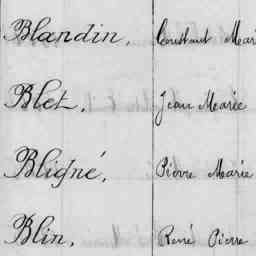 Blandin, Constant Mari
Blet, Jean Marie
Bligné, Pierre Marie
Blin, René Pierre